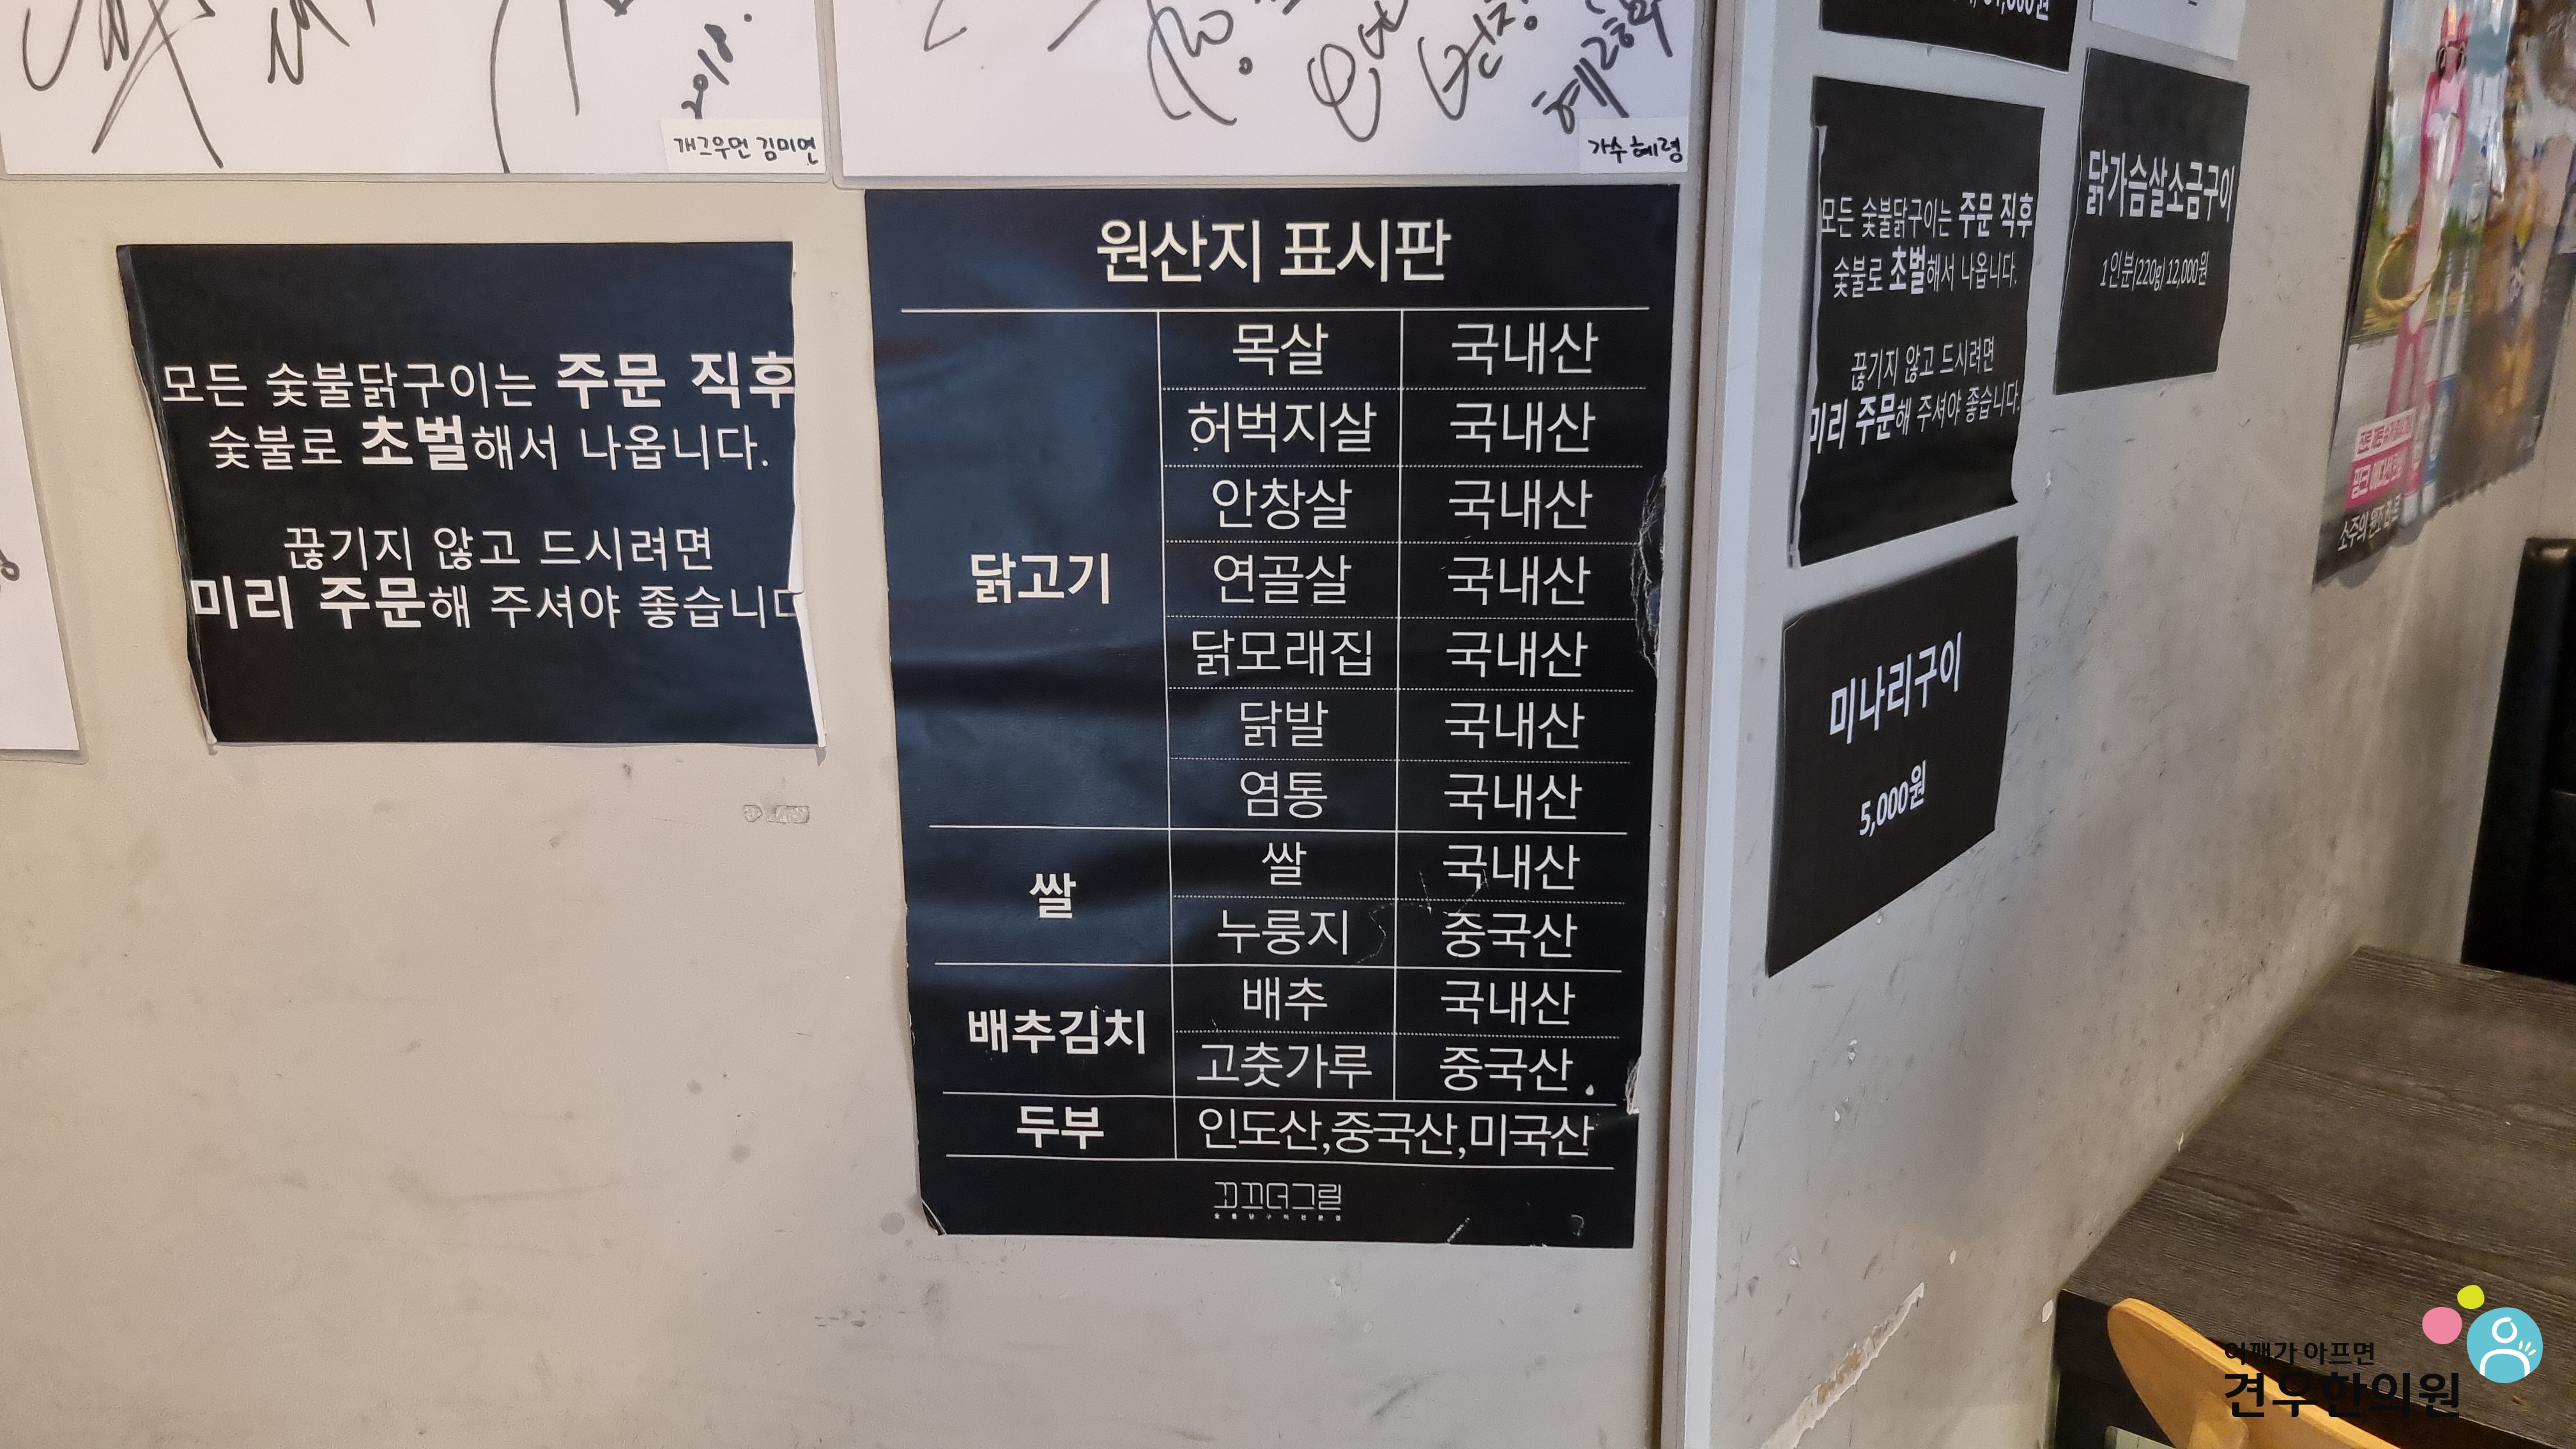 2018.
개그우먼 김미연
가수 혜령
모든 숯불닭구이는 주문 직후
숯불로 초벌해서 나옵니다.
끊기지 않고 드시려면
미리 주문해 주셔야 좋습니다
원산지 표시판
닭고기
목살 국내산
허벅지살 국내산
안창살 국내산
연골살 국내산
닭모래집 국내산
닭발 국내산
염통 국내산
쌀
쌀 국내산
누룽지 중국산
배추김치
배추 국내산
고춧가루 중국산
두부 인도산,중국산,미국산
꼬끄더그릴
숯불닭구이전문점
모든 숯불닭구이는 주문 직후
숯불로 초벌해서 나옵니다.
끊기지 않고 드시려면
미리 주문해 주셔야 좋습니다.
닭가슴살소금구이
1인분(220g) 12,000원
미나리구이
5,000원
소주의 원조
어깨가 아프면
견우한의원